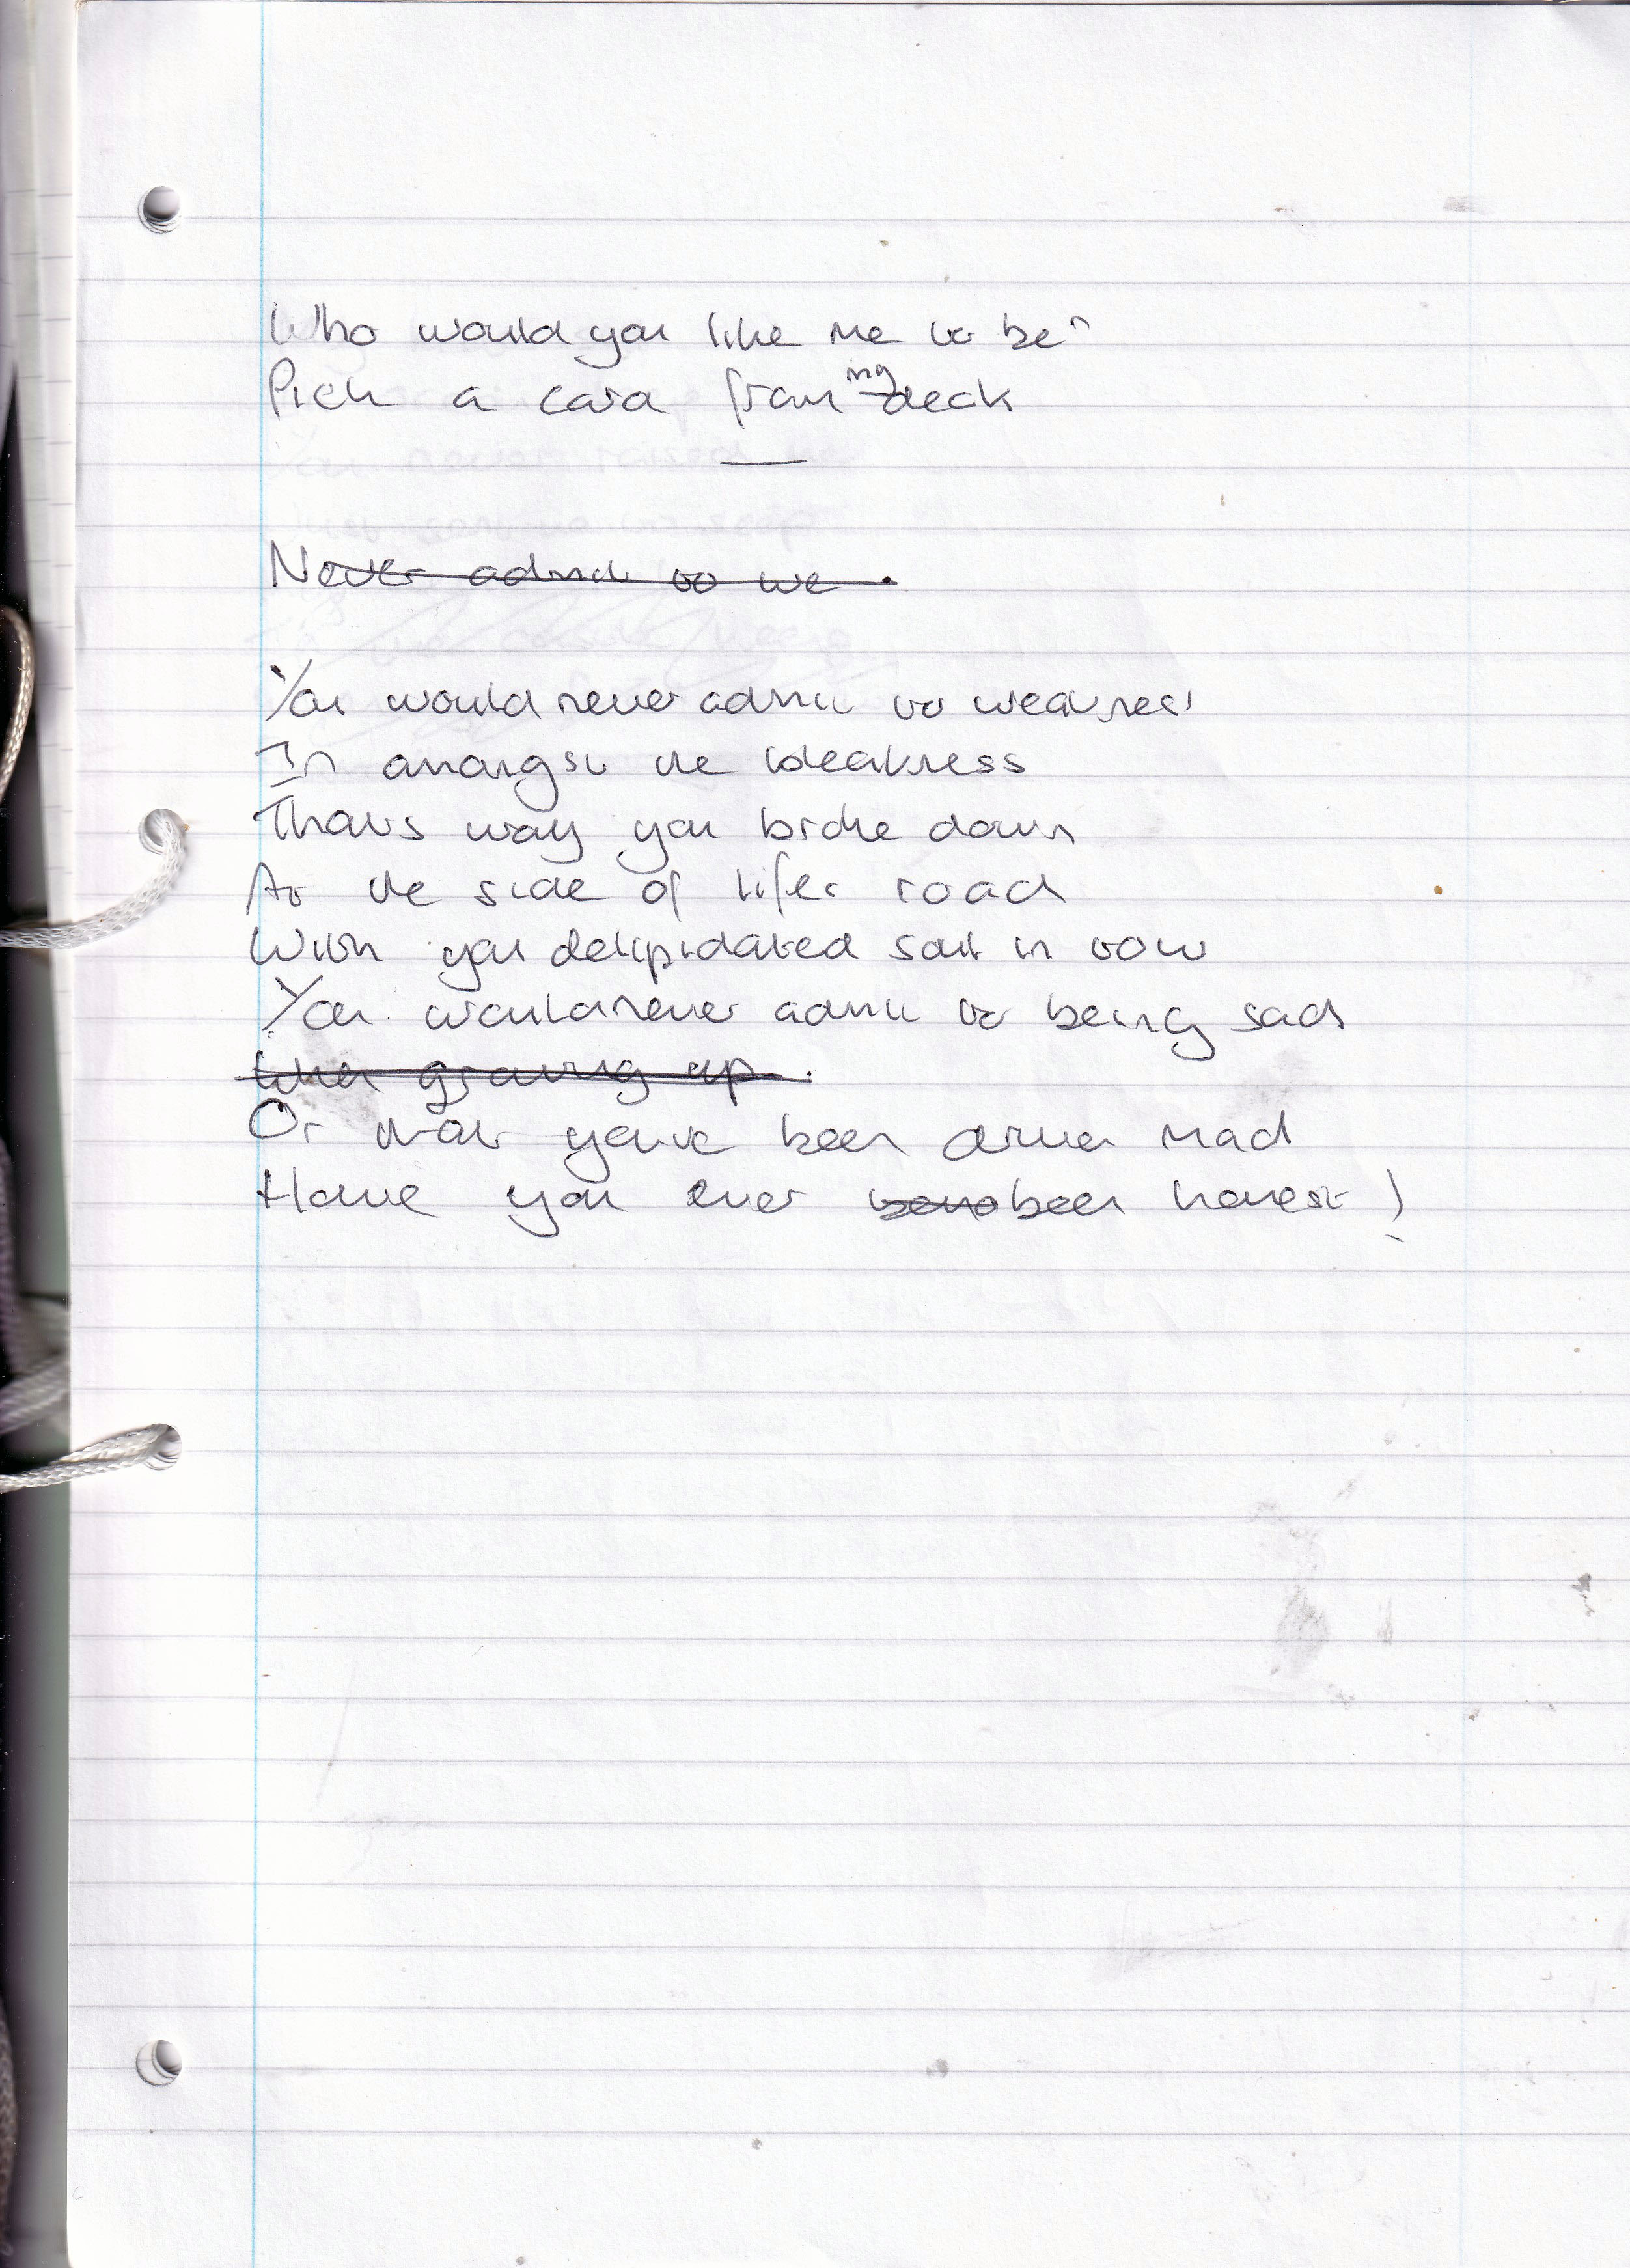 Who would you like me to be?
Pick a card from my deck
Never admit to we
You would never admit to weakness
In amongst the bleakness
Thats way you broke down
At the side of lifes road
With you delipidated soul in tow
You would never admit to being sad
When growing up
Or that youve been driven mad
Have you ever been honest!